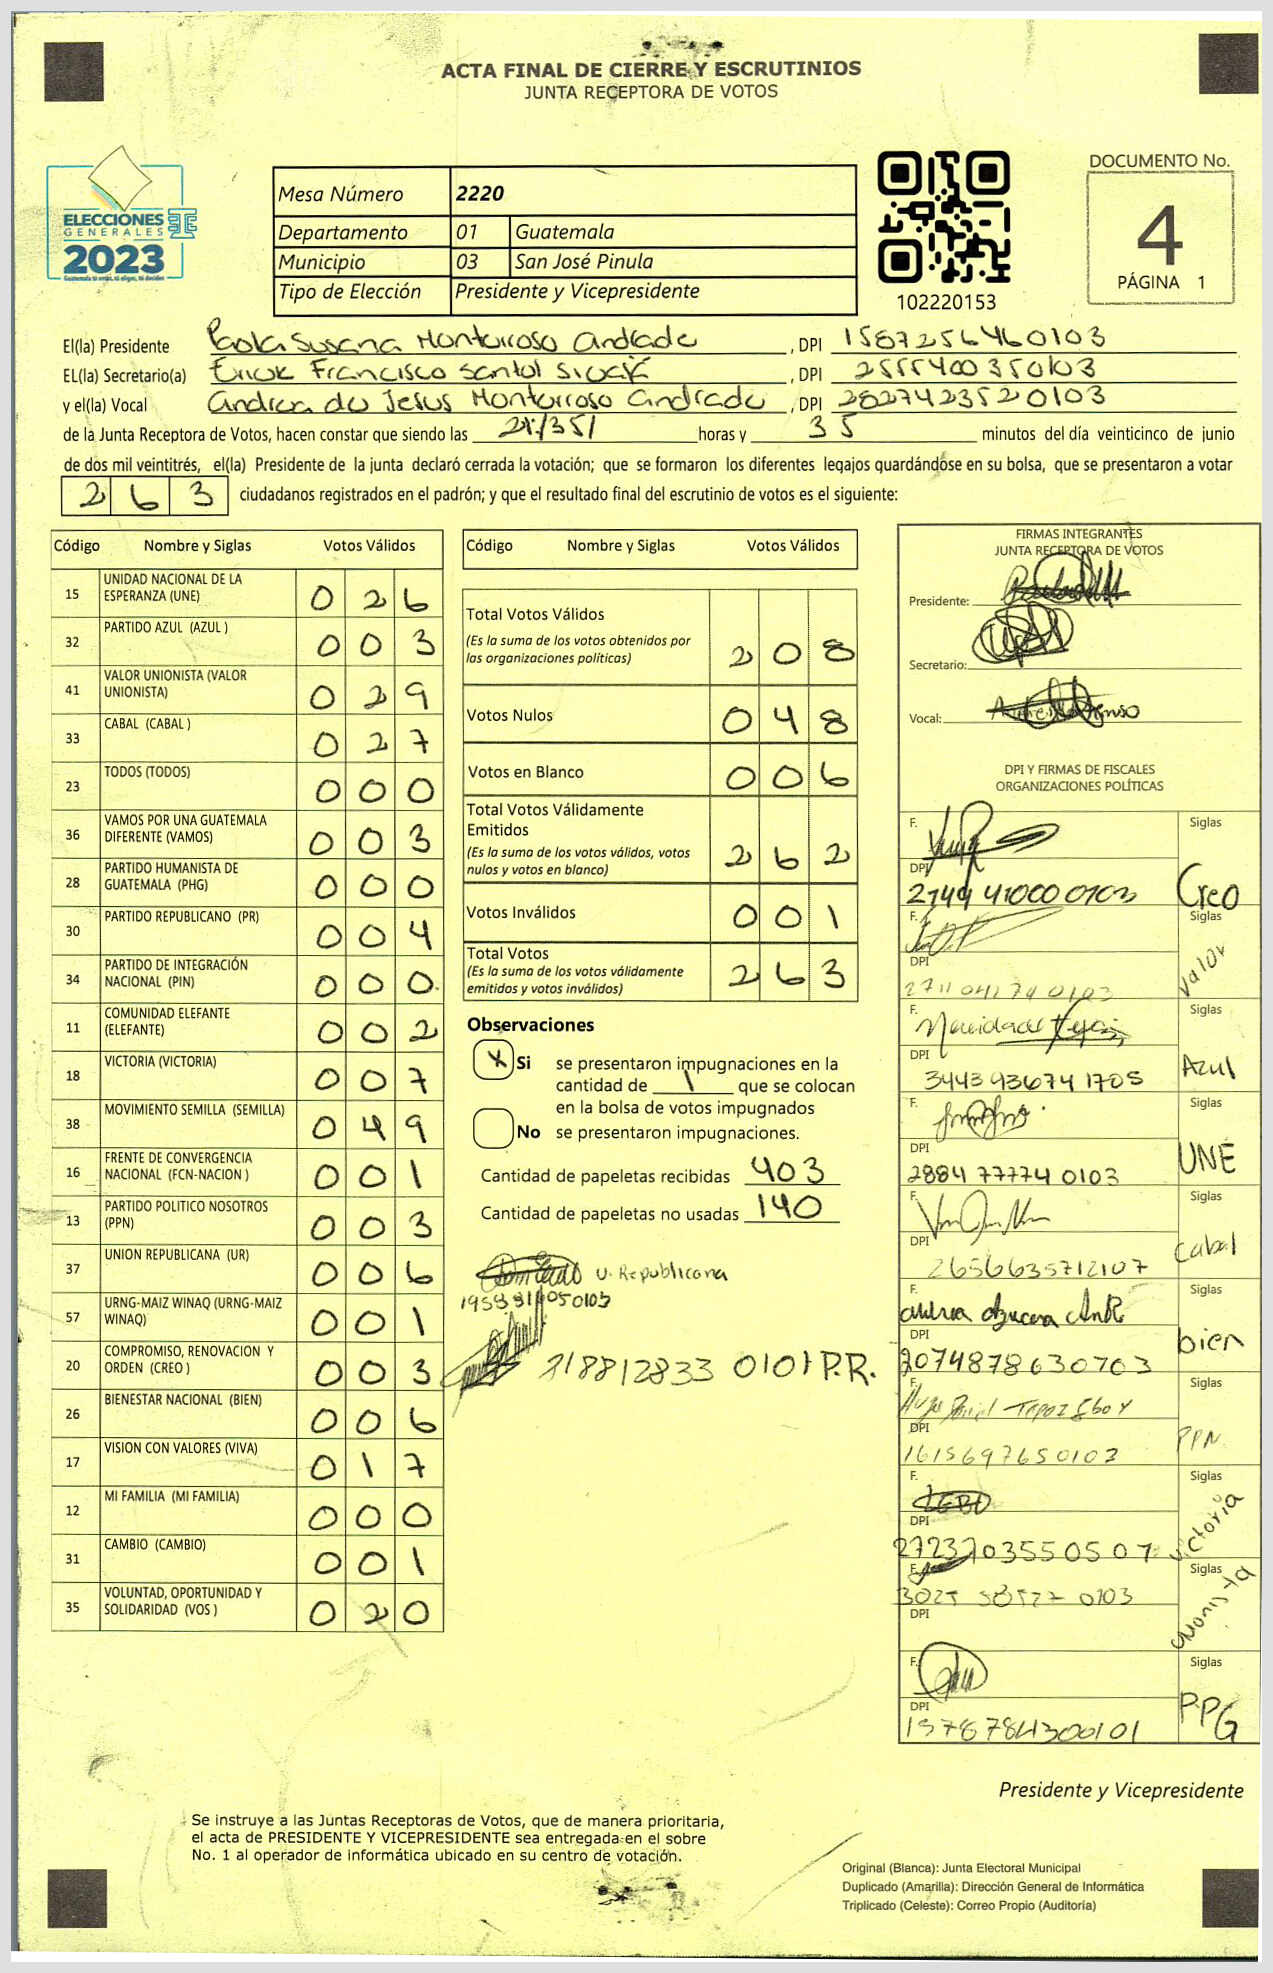 ACTA FINAL DE CIERRE Y ESCRUTINIOS
JUNTA RECEPTORA DE VOTOS
ELECCIONES
GENERALES
2023
Mesa Número 2220
Departamento 01 Guatemala
Municipio 03 San José Pinula
Tipo de Elección Presidente y Vicepresidente
102220153
DOCUMENTO No.
4
PÁGINA 1
El(la) Presidente Paola Susana Monterroso Andrade, DPI 1587256460103
EL(la) Secretario(a) Erick Francisco Santol, DPI 2555400350103
y el(la) Vocal Andrea de Jesus Monterroso Andrade, DPI 2827423520103
de la Junta Receptora de Votos, hacen constar que siendo las horas y 35 minutos del día veinticinco de junio
de dos mil veintitrés, el(la) Presidente de la junta declaró cerrada la votación; que se formaron los diferentes legajos guardándose en su bolsa, que se presentaron a votar
263 ciudadanos registrados en el padrón; y que el resultado final del escrutinio de votos es el siguiente:
Código Nombre y Siglas Votos Válidos
15 UNIDAD NACIONAL DE LA ESPERANZA (UNE) 026
32 PARTIDO AZUL (AZUL ) 003
41 VALOR UNIONISTA (VALOR UNIONISTA) 029
33 CABAL (CABAL ) 027
23 TODOS (TODOS) 000
36 VAMOS POR UNA GUATEMALA DIFERENTE (VAMOS) 003
28 PARTIDO HUMANISTA DE GUATEMALA (PHG) 000
30 PARTIDO REPUBLICANO (PR) 004
34 PARTIDO DE INTEGRACIÓN NACIONAL (PIN) 000
11 COMUNIDAD ELEFANTE (ELEFANTE) 002
18 VICTORIA (VICTORIA) 007
38 MOVIMIENTO SEMILLA (SEMILLA) 049
16 FRENTE DE CONVERGENCIA NACIONAL (FCN-NACION ) 001
13 PARTIDO POLITICO NOSOTROS (PPN) 003
37 UNION REPUBLICANA (UR) 006
57 URNG-MAIZ WINAQ (URNG-MAIZ WINAQ) 001
20 COMPROMISO, RENOVACION Y ORDEN (CREO ) 003
26 BIENESTAR NACIONAL (BIEN) 006
17 VISION CON VALORES (VIVA) 017
12 MI FAMILIA (MI FAMILIA) 000
31 CAMBIO (CAMBIO) 001
35 VOLUNTAD, OPORTUNIDAD Y SOLIDARIDAD (VOS ) 020
Código Nombre y Siglas Votos Válidos
Total Votos Válidos 208
(Es la suma de los votos obtenidos por
las organizaciones políticas)
Votos Nulos 048
Votos en Blanco 006
Total Votos Válidamente
Emitidos 262
(Es la suma de los votos válidos, votos
nulos y votos en blanco)
Votos Inválidos 001
Total Votos 263
(Es la suma de los votos válidamente
emitidos y votos inválidos)
Observaciones
X Si se presentaron impugnaciones en la
cantidad de 1 que se colocan
en la bolsa de votos impugnados
No se presentaron impugnaciones.
Cantidad de papeletas recibidas 403
Cantidad de papeletas no usadas 140
U. Republicana
218812833 0101 P.R.
FIRMAS INTEGRANTES
JUNTA RECEPTORA DE VOTOS
Presidente:
Secretario:
Vocal:
DPI Y FIRMAS DE FISCALES
ORGANIZACIONES POLÍTICAS
F. Siglas
DPI
2749 41000 0103 Creo
F. Siglas
DPI
2711 04174 0103 Valor
F. Siglas
DPI
3443 93674 1705 Azul
F. Siglas
DPI
2884 77774 0103 UNE
F. Siglas
DPI
2656635712107 Cabal
F. Siglas
DPI
2074878630703 bien
F. Siglas
DPI
1615697650103 PPN
F. Siglas
DPI
2723703550507 Victoria
F. Siglas
DPI
Unionista
F. Siglas
DPI
1578784300101 PPG
Presidente y Vicepresidente
Se instruye a las Juntas Receptoras de Votos, que de manera prioritaria,
el acta de PRESIDENTE Y VICEPRESIDENTE sea entregada en el sobre
No. 1 al operador de informática ubicado en su centro de votación.
Original (Blanca): Junta Electoral Municipal
Duplicado (Amarilla): Dirección General de Informática
Triplicado (Celeste): Correo Propio (Auditoría)